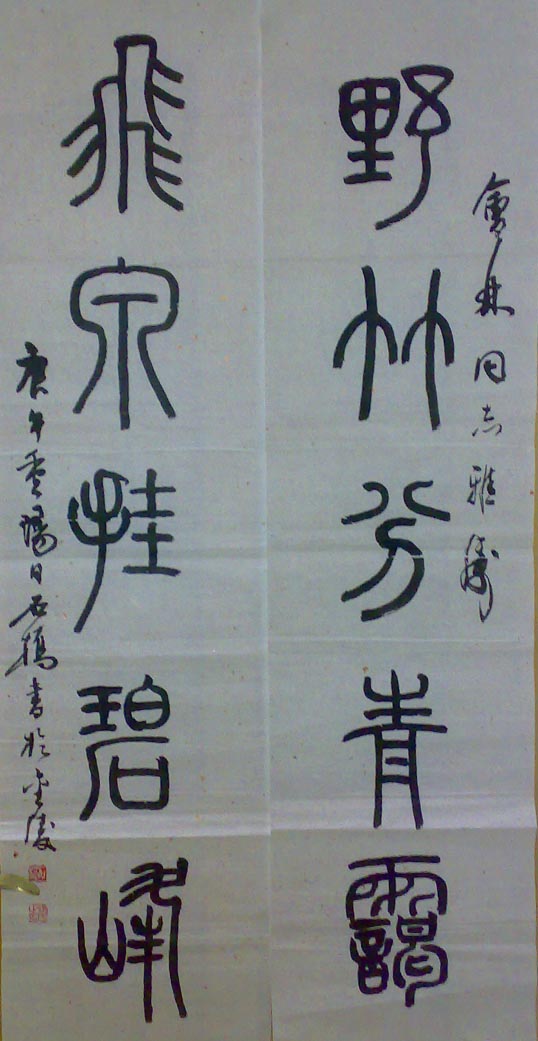 會林同志雅屬
野竹分青靄
飛泉挂碧峰
庚午重陽日石橋書於金陵